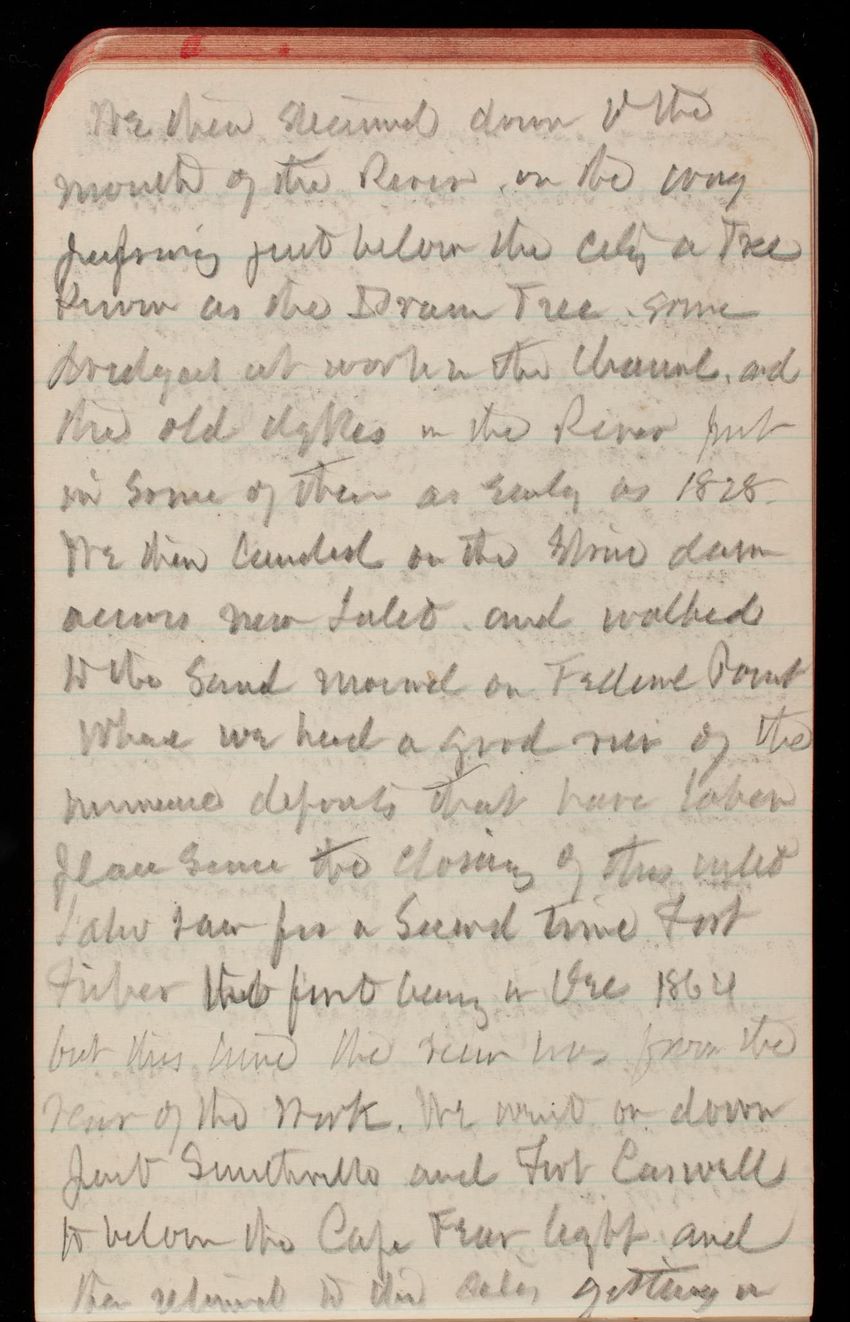 We then steamed down to the
mouth of the River, on the way
passing just below the city a Tree
known as the Dram Tree. some
Dredges at work in the Channel, and
the old dykes in the River put
in some of them as early as 1828.
We then landed on the Stone dam
across new Inlet. and walked
to the Sand mound on Federal Point
Where we had a good view of the
immense deposits that have taken
place since the closing of this inlet
I also saw for a Second time Fort
Fisher the first being in Dec 1864
but this time the view was from the
rear of the Work. We went on down
past Smithville and Fort Caswell
to below the Cape Fear light and
then returned to the city getting in